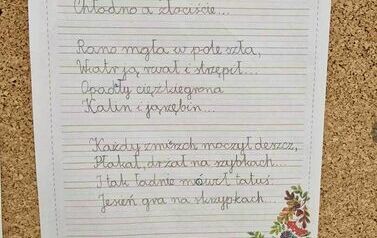 Chłodno a złociście...
Rano mgła w pole szła,
Wiatr ją rwał i strzępił...
Opadły ciężkie grona
Kalin i jarzębin...
Każdy zmierzch moczył deszcz,
Płakał, drżał na szybkach...
I tak ładnie mówił tatuś:
Jesień gra na skrzypkach...